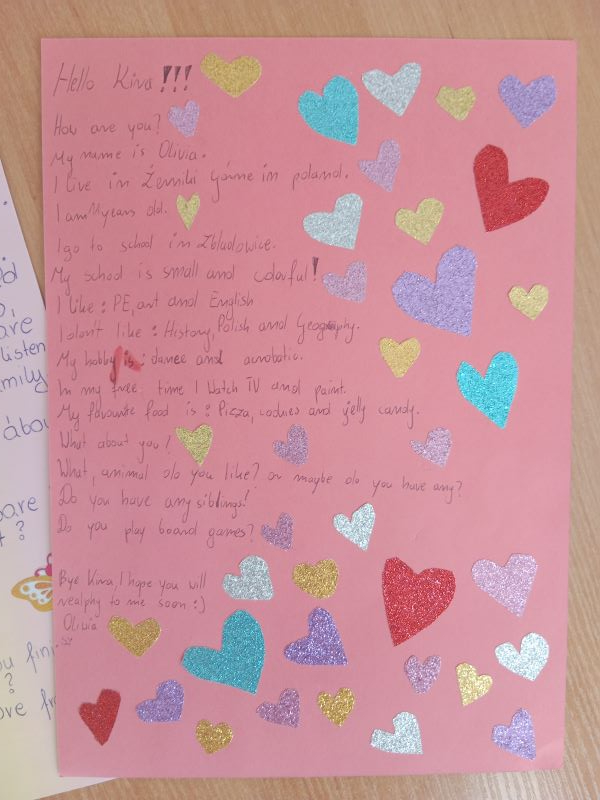 Hello Kira!!!
How are you?
My name is Olivia.
I live in Żerniki Górne in poland.
I am 11 years old.
I go to school in Zbludowice.
My school is small and colorful!
I like : PE, art and English
I don't like : History, Polish and Geography.
My hobby is : dance and acrobatic.
In my free time I Watch TV and paint.
My favourite food is : Pizza, cookies and jelly candy.
What about you?
What, animal do you like? or maybe do you have any?
Do you have any siblings?
Do you play board games?
Bye Kira, I hope you will
realphy to me soon :)
Olivia
are
listen
amily
ábo
are
t ?
ou fini
?
ove fr